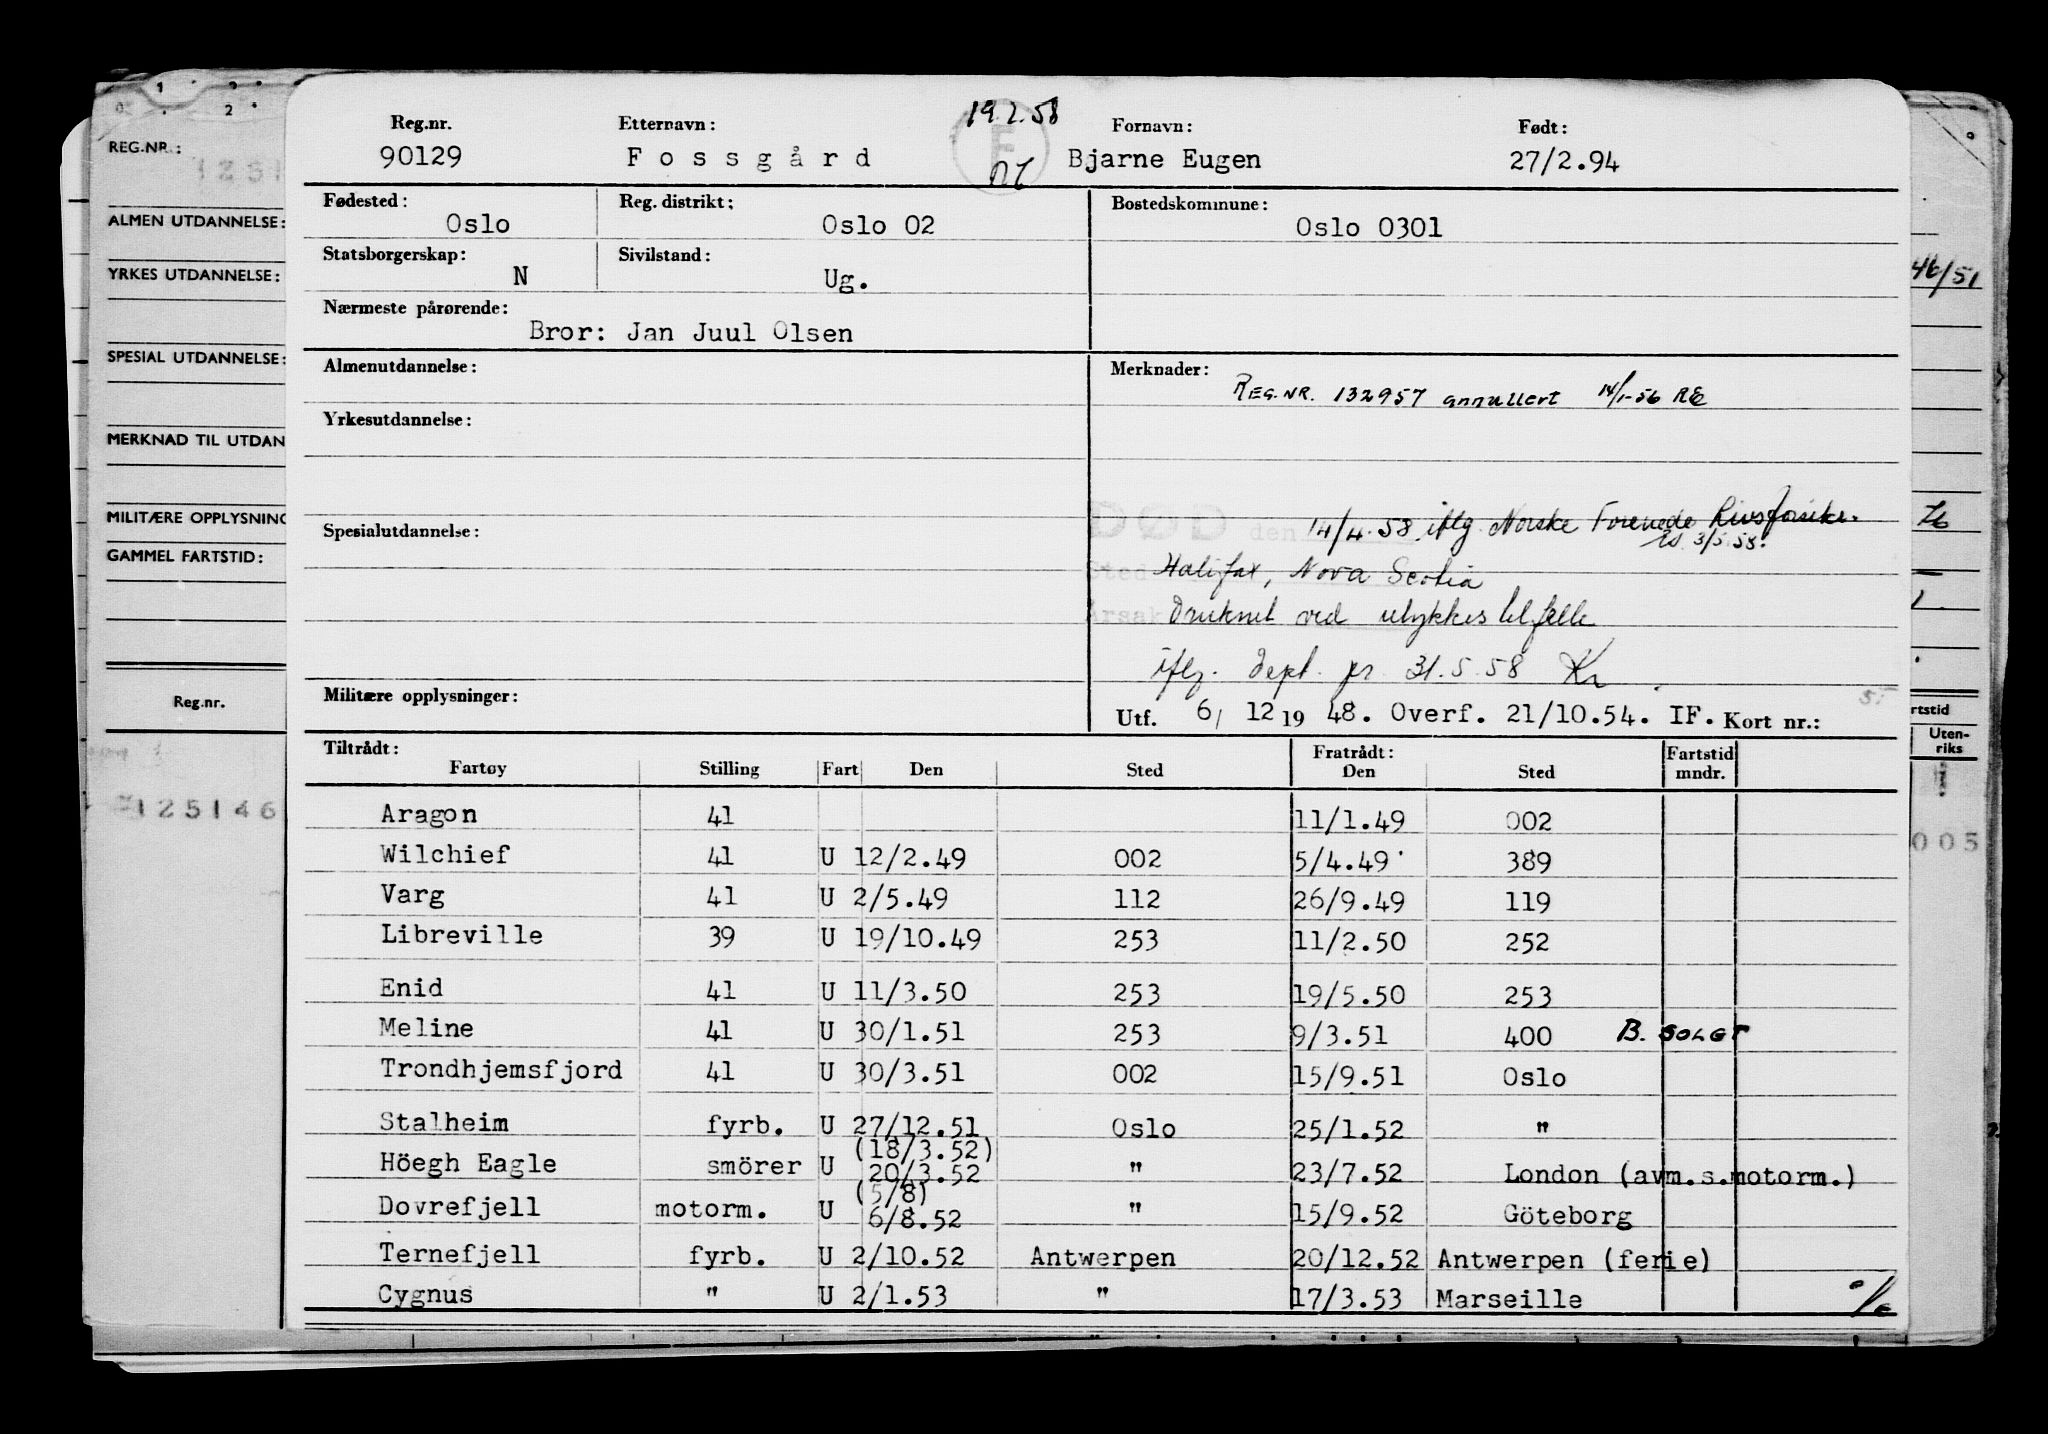 19.2.58
Reg.nr. Etternavn: Fornavn: Født:
90129 Fossgård Bjarne Eugen 27/2.94
Fødested: Reg. distrikt: Bostedskommune:
Oslo Oslo 02 Oslo 0301
Statsborgerskap: Sivilstand:
N Ug.
Nærmeste pårørende:
Bror: Jan Juul Olsen
Almenutdannelse: Merknader:
REG.NR. 132957 annullert 14/1-56 RE
Yrkesutdannelse:
Spesialutdannelse:
DØD den 14/4.58 iflg Norske Forenede Livsforsikr.
3/5.58.
Sted Halifax, Nova Scotia
Årsak Druknet ved ulykkestilfelle
iflg. Dept. pr 31.5.58 Kr
Militære opplysninger:
Utf. 6/ 12 19 48. Overf. 21/10.54. IF. Kort nr.:
Tiltrådt: Fratrådt: Fartstid
Fartøy Stilling Fart Den Sted Den Sted mndr.
Aragon 41 11/1.49 002
Wilchief 41 U 12/2.49 002 5/4.49 389
Varg 41 U 2/5.49 112 26/9.49 119
Libreville 39 U 19/10.49 253 11/2.50 252
Enid 41 U 11/3.50 253 19/5.50 253
Meline 41 U 30/1.51 253 9/3.51 400 B. SOLGT
Trondhjemsfjord 41 U 30/3.51 002 15/9.51 Oslo
Stalheim fyrb. U 27/12.51 Oslo 25/1.52 "
(18/3.52)
Höegh Eagle smörer U 20/3.52 " 23/7.52 London (avm.s.motorm.)
(5/8)
Dovrefjell motorm. U 6/8.52 " 15/9.52 Göteborg
Ternefjell fyrb. U 2/10.52 Antwerpen 20/12.52 Antwerpen (ferie)
Cygnus " U 2/1.53 " 17/3.53 Marseille
REG.NR.:
1251
ALMEN UTDANNELSE:
YRKES UTDANNELSE:
SPESIAL UTDANNELSE:
MERKNAD TIL UTDAN
MILITÆRE OPPLYSNING
GAMMEL FARTSTID:
Reg.nr.
125146
46/51
rtstid
Uten-
riks
005